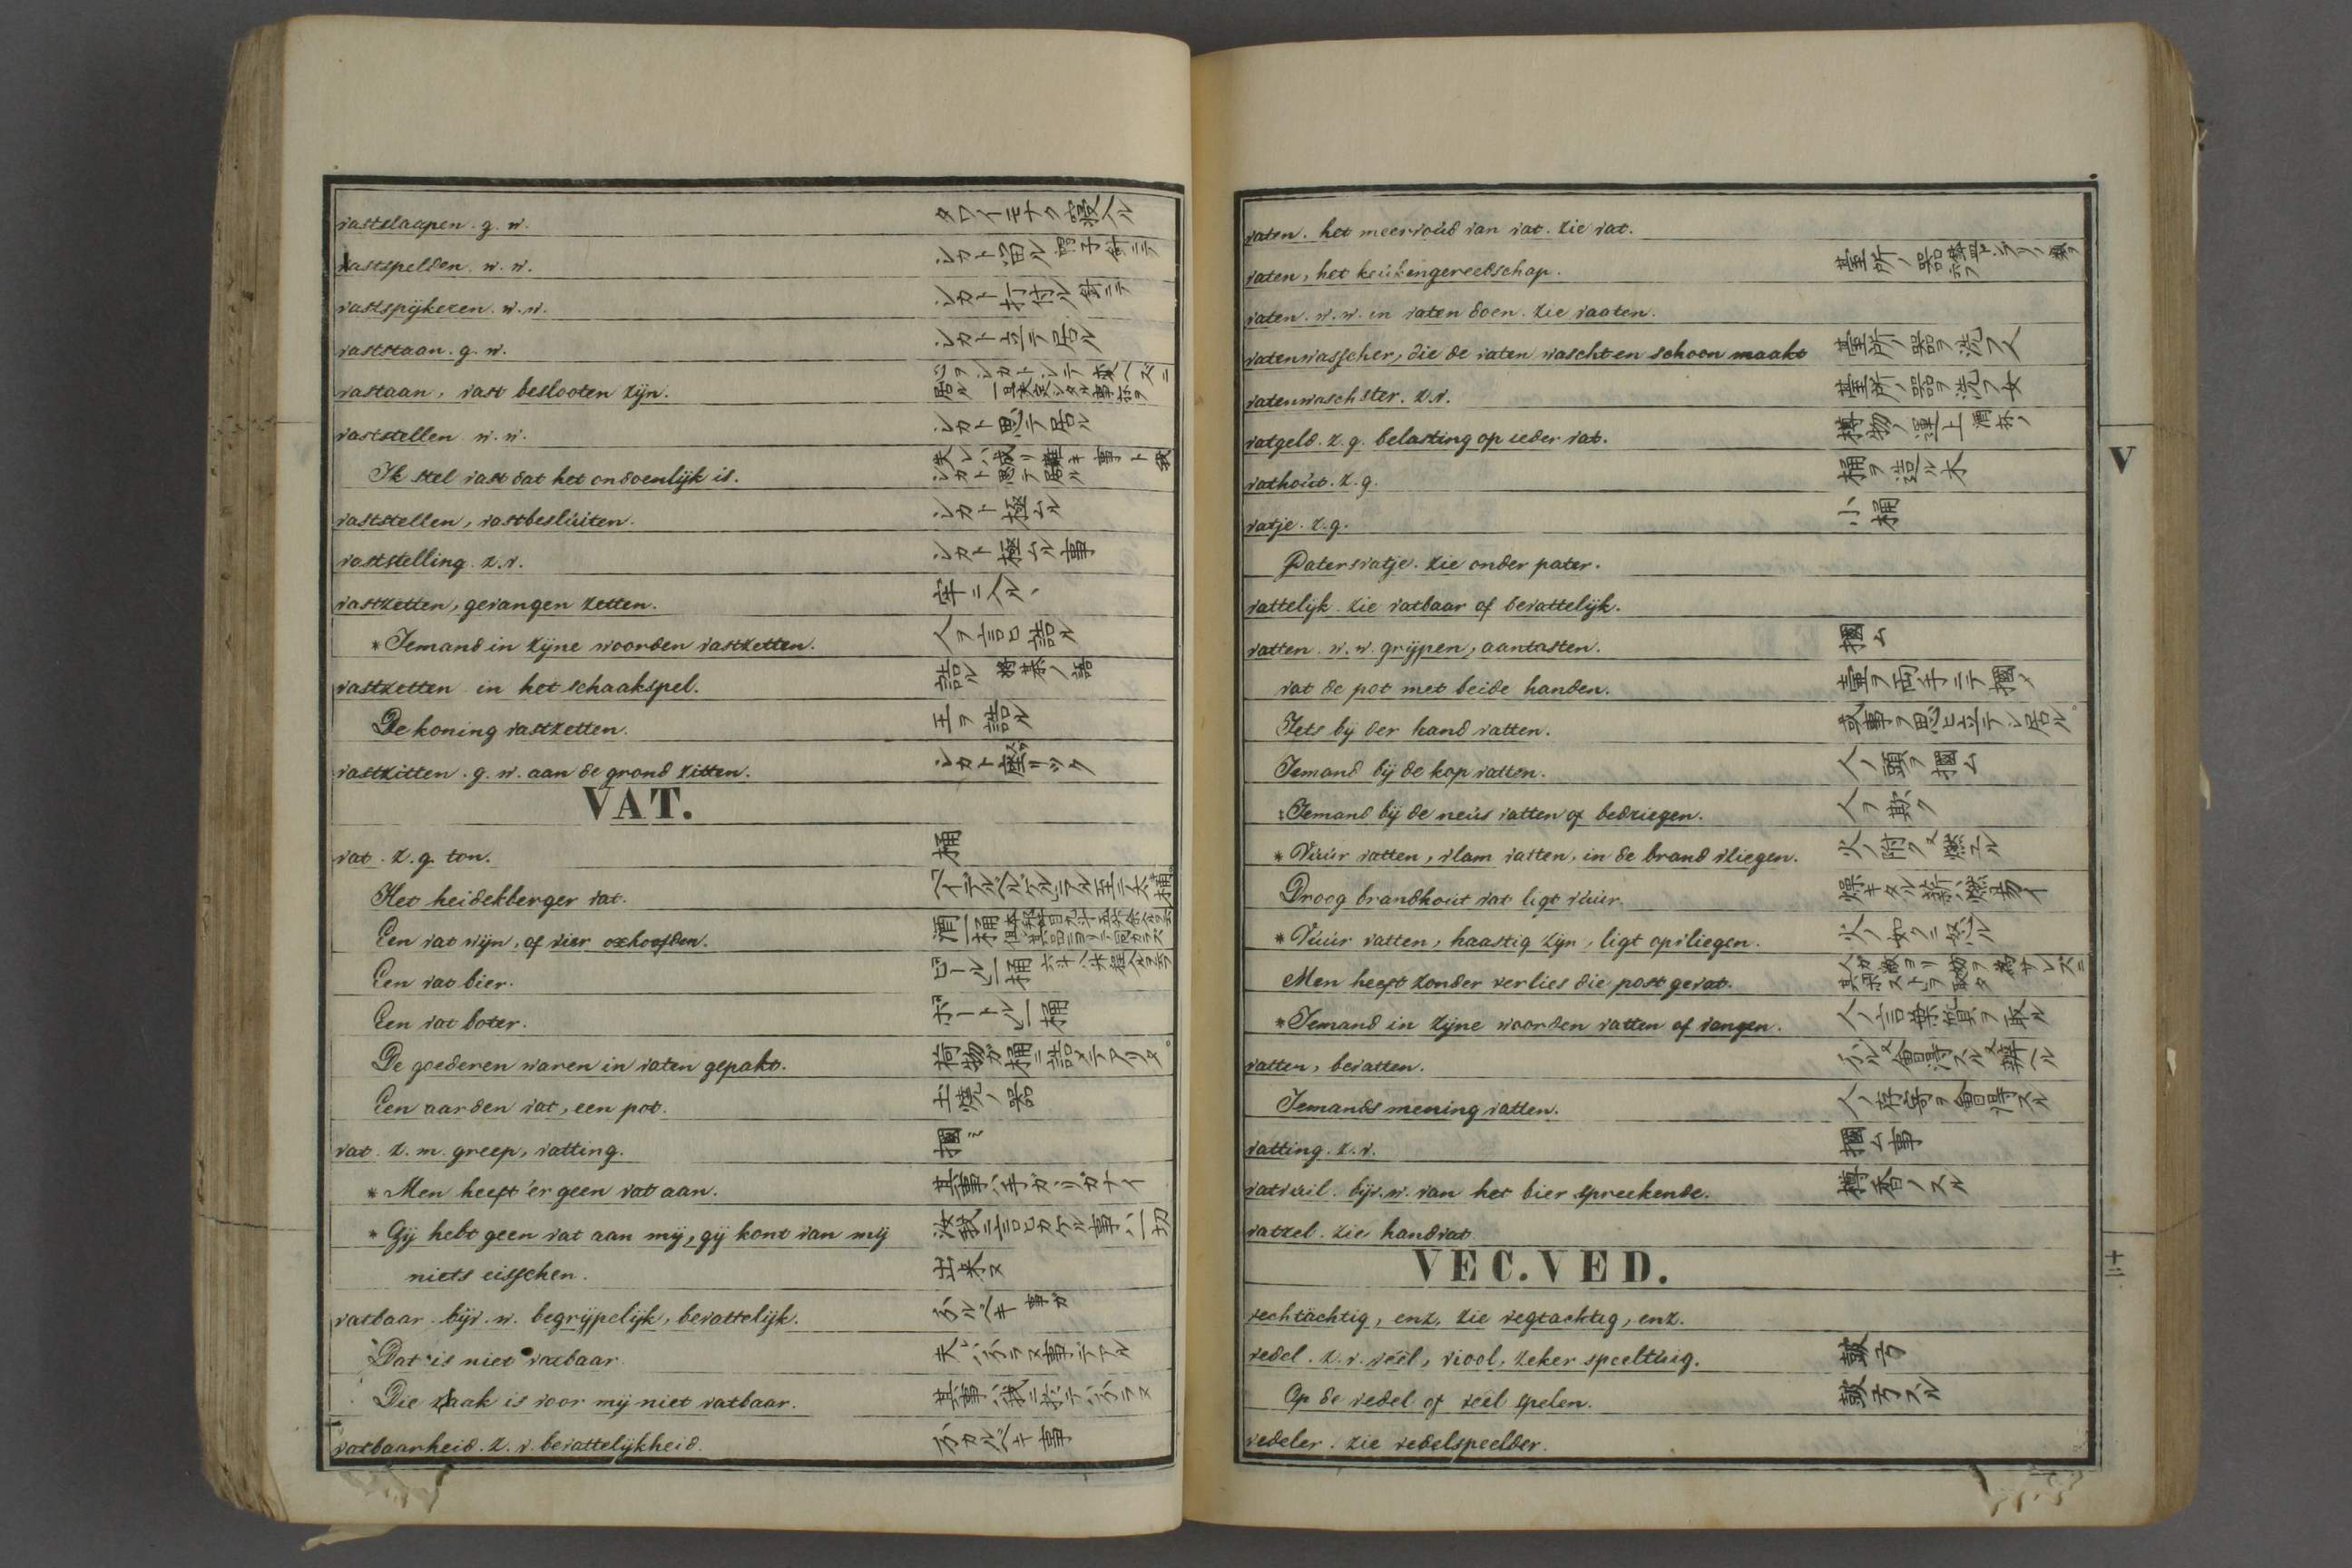 vastslaapen. g. w. タワイモナク寝入ル
vastspelden. w. w. シカト留ル 留子針ニテ
vastspijkeren. w. w. シカト打付ル 針ニテ
vaststaan. g. w. シカト立テ居ル
vastaan, vast beslooten zijn. 心ヲシカトシテ 居ル
vaststellen w. w. シカト思テ居ル
Ik stel vast dat het ondoenlijk is. 夫レハ成リ難キ事ト我シカト思テ居ル
vaststellen, vastbesluiten. シカト極ムル
vaststelling. z. v. シカト極ムル事
vastzetten, gevangen zetten. 牢ニ入ル
* Iemand in zijne woorden vastzetten. 人ヲ言ヒ詰ル
vastzetten in het schaakspel. 詰ル 将棊ノ語
De koning vastzetten. 王ヲ詰ル
vastzitten. g. w. aan de grond zitten. シカト
VAT.
vat. z. g. ton. 桶
Het heidekberger vat.
Een vat wijn, of vier oxhoofden. 酒一桶
Een vat bier. ビール一桶
Een vat boter. ボートル一桶
De goederen waren in vaten gepakt. 荷物ガ桶ニ詰メテアリタ。
Een aarden vat, een pot. 土焼ノ器
vat. z. m. greep, vatting. 摑ミ
* Men heeft 'er geen vat aan. 其事ハ手ガヽリガナイ
* Gij hebt geen vat aan mij, gij kont van mij 汝我ニ言ヒカケル事ハ一切
niets eisschen. 出来ヌ
vatbaar. bijv. w. begrijpelijk, bevattelijk. 分ルベキ 事ガ
Dat is niet vatbaar. 夫ハ分ラヌ事デアル
Die zaak is voor mij niet vatbaar. 其事ハ我ニ於テハ分ラヌ
vatbaarheid. z. v. bevattelijkheid. 分カルベキ事
vaten. het meervoud van vat. zie vat.
vaten, het keukengereedschap. 臺所ノ器
vaten. w. w. in vaten doen. zie vaaten.
vatenwasscher, die de vaten wascht en schoon maakt 臺所ノ器ヲ洗フ人
vatenwaschster. z. v. 臺所ノ器ヲ洗フ女
vatgeld. z. g. belasting op ieder vat. 樽物ノ運上 酒抔ノ
vathout. z. g. 桶ヲ造ル木
vatje. z. g. 小桶
Patersvatje. zie onder pater.
vattelijk. zie vatbaar of bevattelijk.
vatten. w. w. grijpen, aantasten. 摑ム
vat de pot met beide handen. 壷ヲ両手ニテ摑メ
Iets bij der hand vatten. 或事ヲ思ヒ立テシ居ル。
Iemand bij de kop vatten. 人ノ頭ヲ摑ム
* Iemand bij de neus vatten of bedriegen. 人ヲ欺ク
* Vuur vatten, vlam vatten, in de brand vliegen. 火ノ附ク又燃ユル
Droog brandhout vat ligt vuur. 燥キタル薪ハ燃易イ
* Vuur vatten, haastig zijn, ligt opvliegen. 火ノ如クニ怒ル
Men heeft zonder verlies die post gevat.
* Iemand in zijne woorden vatten of vangen. 人ノ言葉質ヲ取ル
vatten, bevatten. 分ル又會得スル又辨ヘル
Iemands mening vatten. 人ノ存寄ヲ會得スル
vatting. z. v. 摑ム事
vatvuil. bijv. w. van het bier spreekende. 樽香ノスル
vatzel. zie handvat
VEC. VED.
vechtachtig, enz. zie vegtachtig, enz.
vedel. z. v. veel, viool, zeker speeltuig. 皷弓
Op de vedel of veel spelen. 皷弓スル
vedeler. zie vedelspeelder.
V
十二